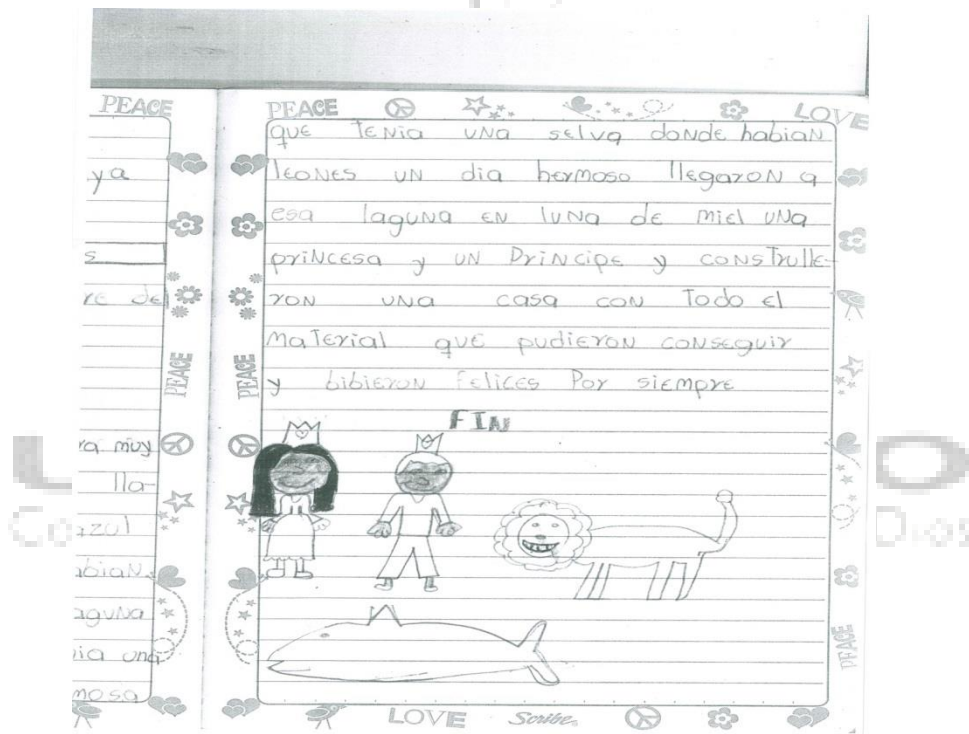 PEACE
ya
s
re del
PEACE
ra muy
lla-
azul
abian
aguna
nia una
mosa
PEACE LOVE
que tenia una selva donde habian
leones un dia hermoso llegaron a
esa laguna en luna de miel una
princesa y un Principe y construlle-
ron una casa con todo el
material que pudieron conseguir
y bibieron felices Por siempre
FIN
PEACE
PEACE
LOVE Scribe
Dios